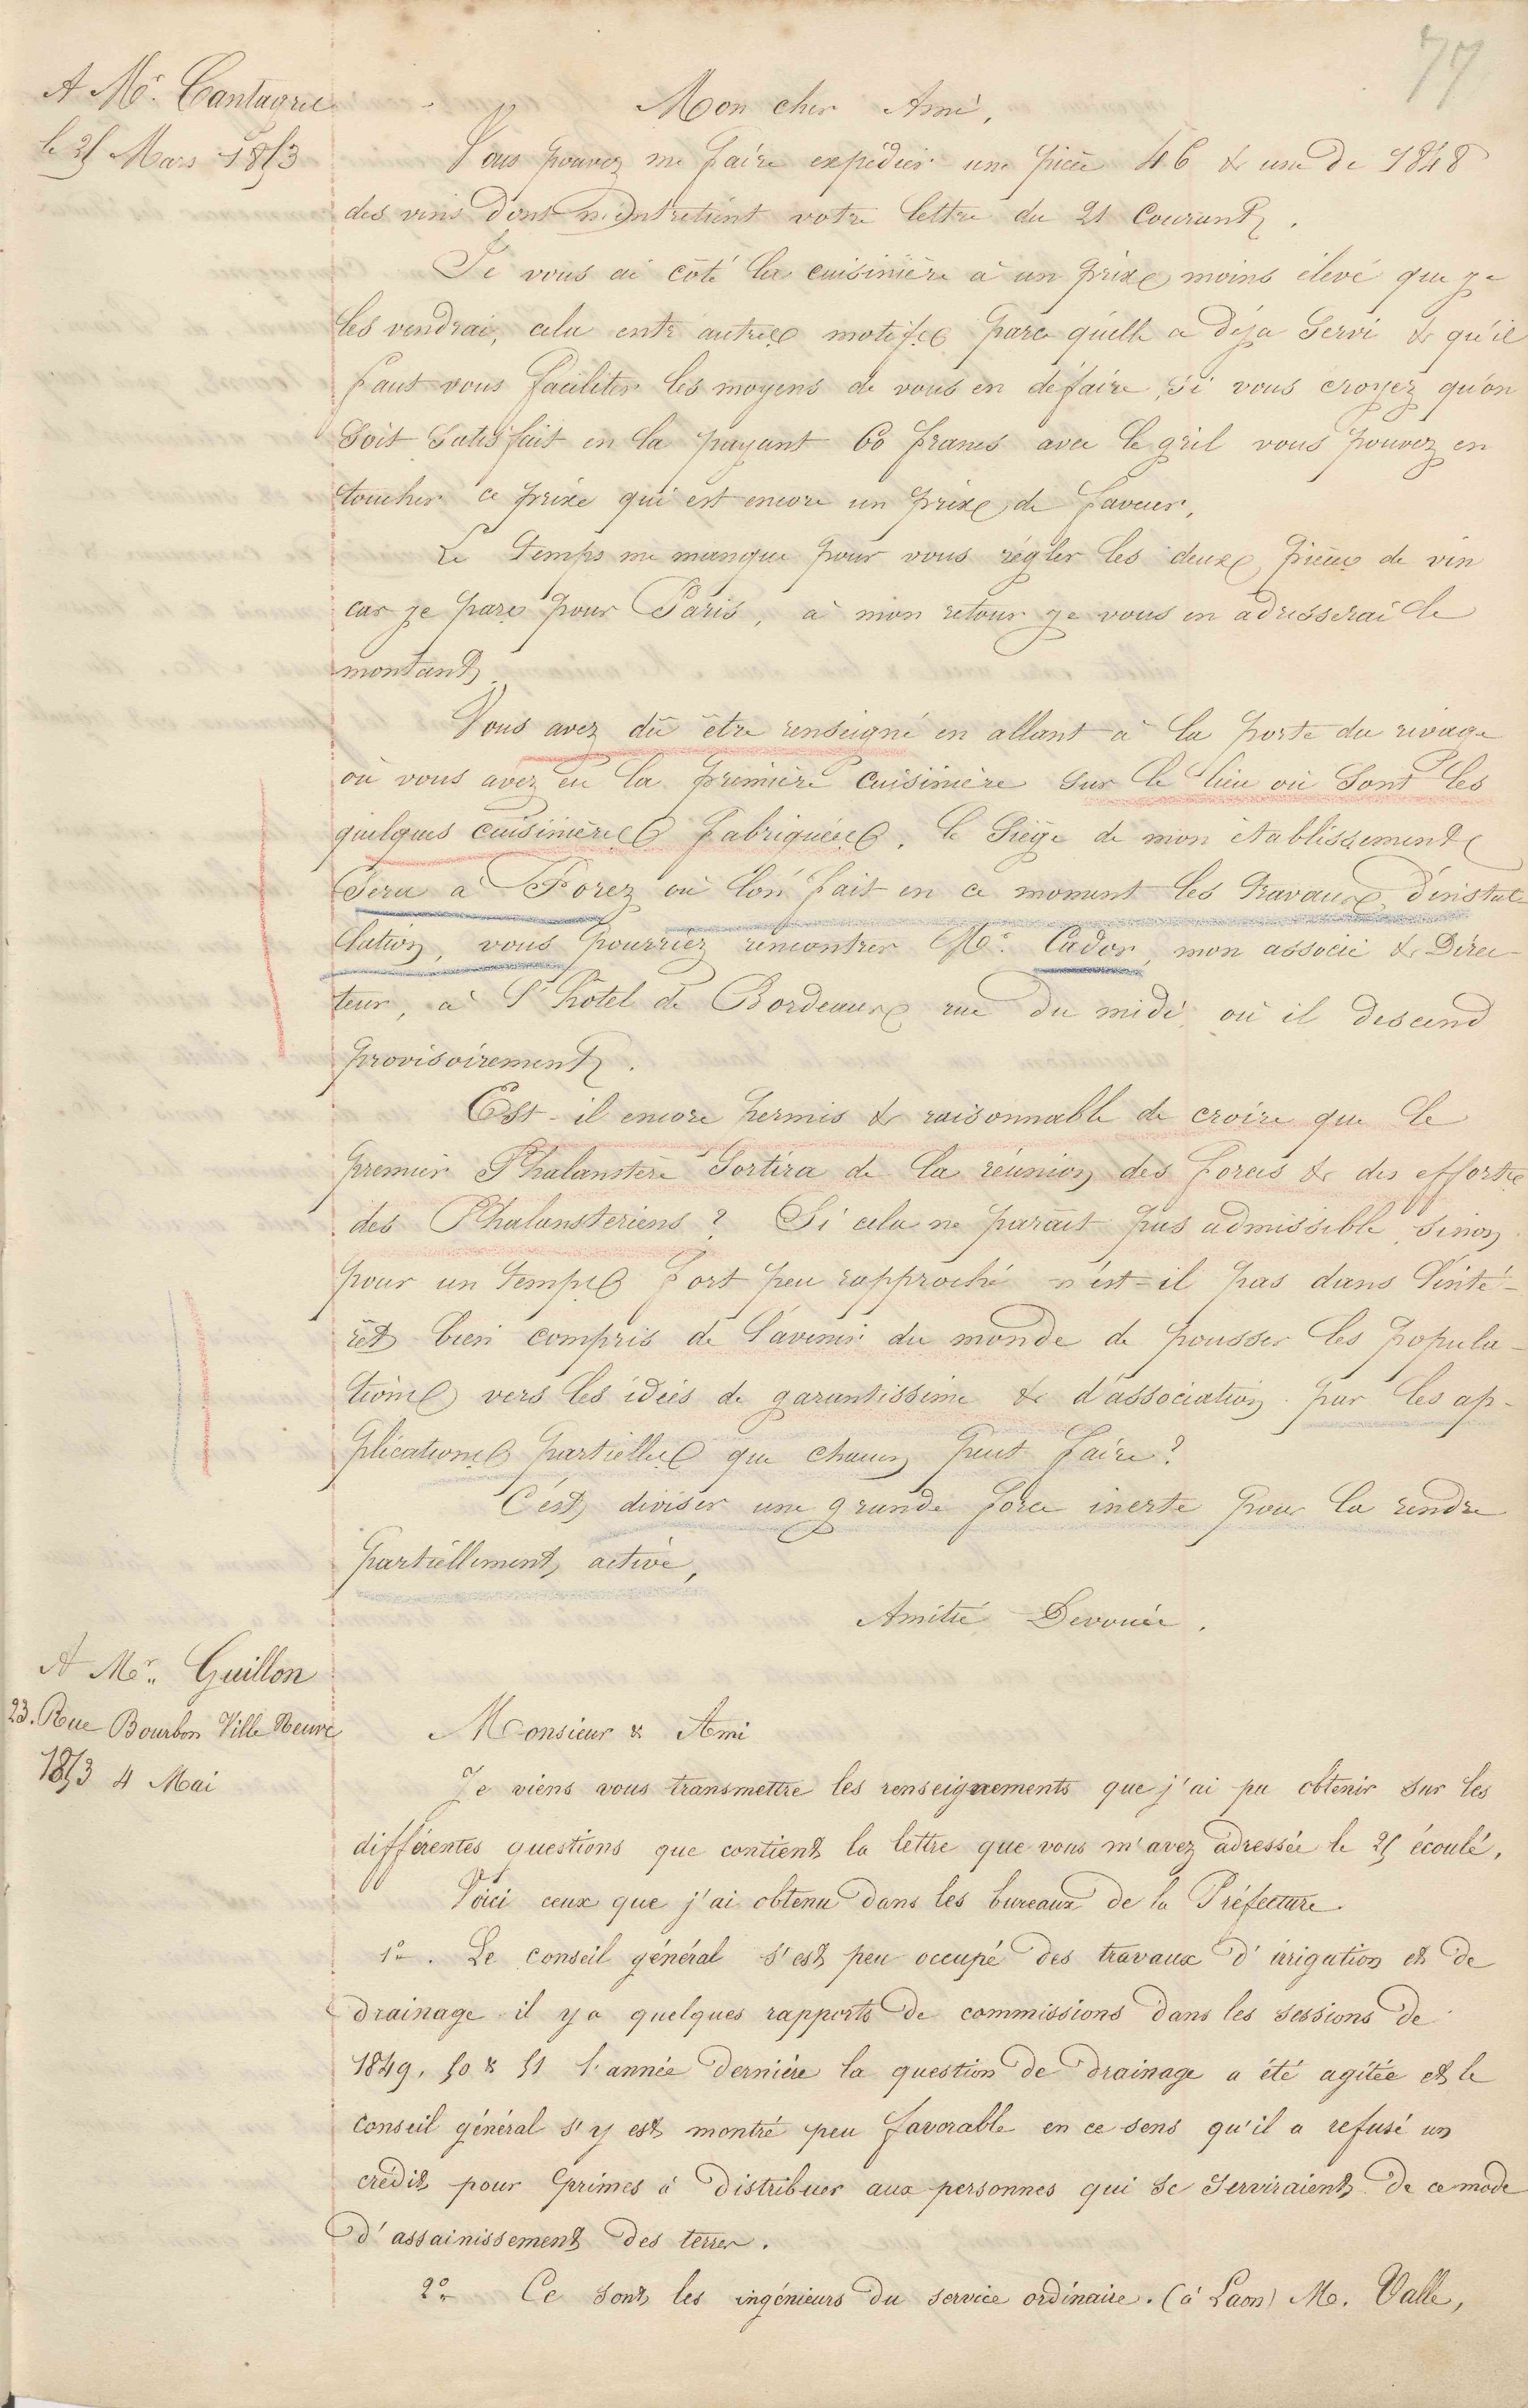 77
A Mr. Cantagrel
le 25 Mars 1853
Mon cher Ami,
Vous pouvez me faire expédier une pièce 46 & une de 1848
des vins dont m'entretient votre lettre du 21 Courant.
Je vous ai côté la cuisinière à un prix moins élevé que je
les vendrai, cela entr autres motifs parce quelle a déja servi & qu'il
faut vous faciliter les moyens de vous en défaire, si vous croyez qu'on
soit satisfait en la payant 60 francs avec le gril vous pouvez en
toucher ce prix qui est encore un prix de faveur,
Le temps me manque pour vous régler les deux pièces de vin
car je pars pour Paris, à mon retour je vous en adresserai le
montant.
Vous avez dû être renseigné en allant à la porte du rivage
où vous avez eu la première cuisinière sur le lieu où sont les
quelques cuisinières fabriquées, le Siège de mon établissement
Sera à Forez où l'on fait en ce moment les travaux d'instal-
lation, vous pourriez rencontrer Mr. Cador, mon associé & Direc-
teur, à l'hôtel de Bordeaux rue du midi où il descend
provisoirement.
Est-il encore permis & raisonnable de croire que le
premier Phalanstère Sortira de la réunion des forces & des efforts
des Phalansteriens ? Si cela ne parait pas admissible sinon
pour un temps fort peu rapproché n'est-il pas dans l'inté-
rêt bien compris de l'avenir du monde de pousser les popula-
tions vers les idées de garantissime & d'association par les ap-
plications partielles que chacun peut faire ?
C'est diviser une grande force inerte pour la rendre
partiellement active,
Amitié Devouée.
A Mr. Guillon
23. Rue Bourbon Ville Neuve
1853 4 Mai
Monsieur & Ami
Je viens vous transmettre les renseignements que j'ai pu obtenir sur les
différentes questions que contient la lettre que vous m'avez adressée le 25 écoulé,
Voici ceux que j'ai obtenu dans les bureaux de la Préfecture.
1°. Le conseil général s'est peu occupé des travaux d'irrigation et de
drainage il y a quelques rapports de commissions dans les sessions de
1849, 50 & 51 l'année dernière la question de drainage a été agitée et le
conseil général s'y est montré peu favorable en ce sens qu'il a refusé un
crédit pour primes à distribuer aux personnes qui se serviraient de ce mode
d'assainissement des terres.
2° Ce sont les ingénieurs du service ordinaire. (à Laon) M. Valle,